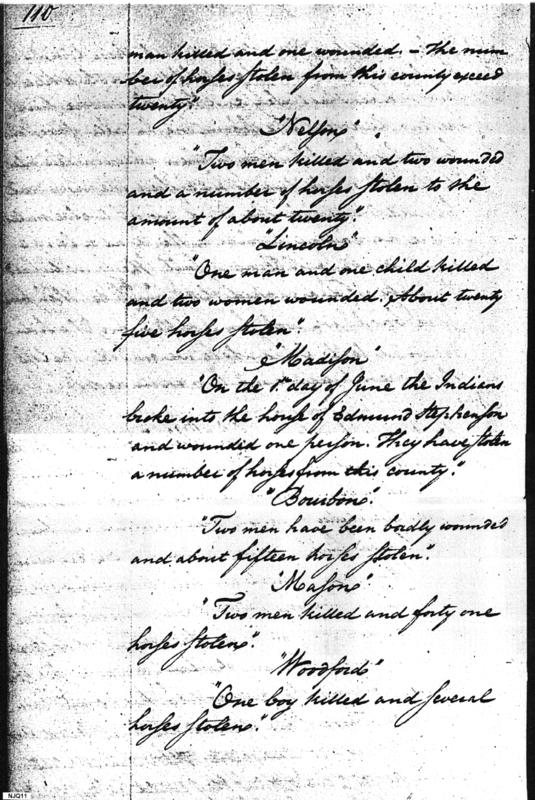 110
man killed and one wounded. – The num
ber of horses stolen from this county exceed
twenty".
"Nelson"
"Two men killed and two wounded
and a number of horses stolen to the
amount of about twenty".
"Lincoln"
"One man and one child killed
and two women wounded. About twenty
five horses stolen".
"Madison"
"On the 1st day of June the Indians
broke into the house of Edmund Stephenson
and wounded one person. They have stolen
a number of horses from this county."
"Bourbon".
"Two men have been badly wounded
and about fifteen horses stolen".
"Mason"
"Two men killed and forty one
horses stolen".
"Woodford"
"One boy killed and several
horses stolen."
NJQ11